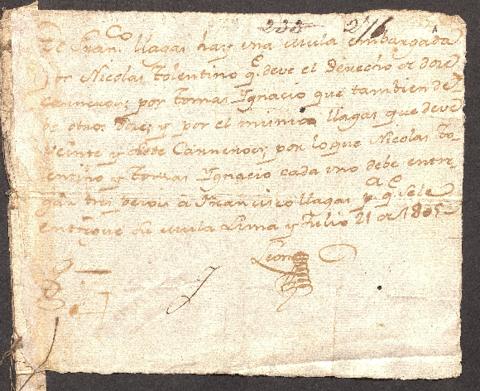 233 276
De Fran.co llagas hay una mula embargada
por Nicolas Tolentino q.e deve el Derecho de doce
Carneros; por Tomas Ygnacio que tambien de
de otros Diez y por el mismo llagas que deve
veinte y siete Carneros; por lo que Nicolas To-
lentino y Tomas Ygnacio cada uno debe entre
gar tres pesos á Francisco llagas p.a q.e se le
entregue su mula Lima y Julio 21 de 1805
Leon